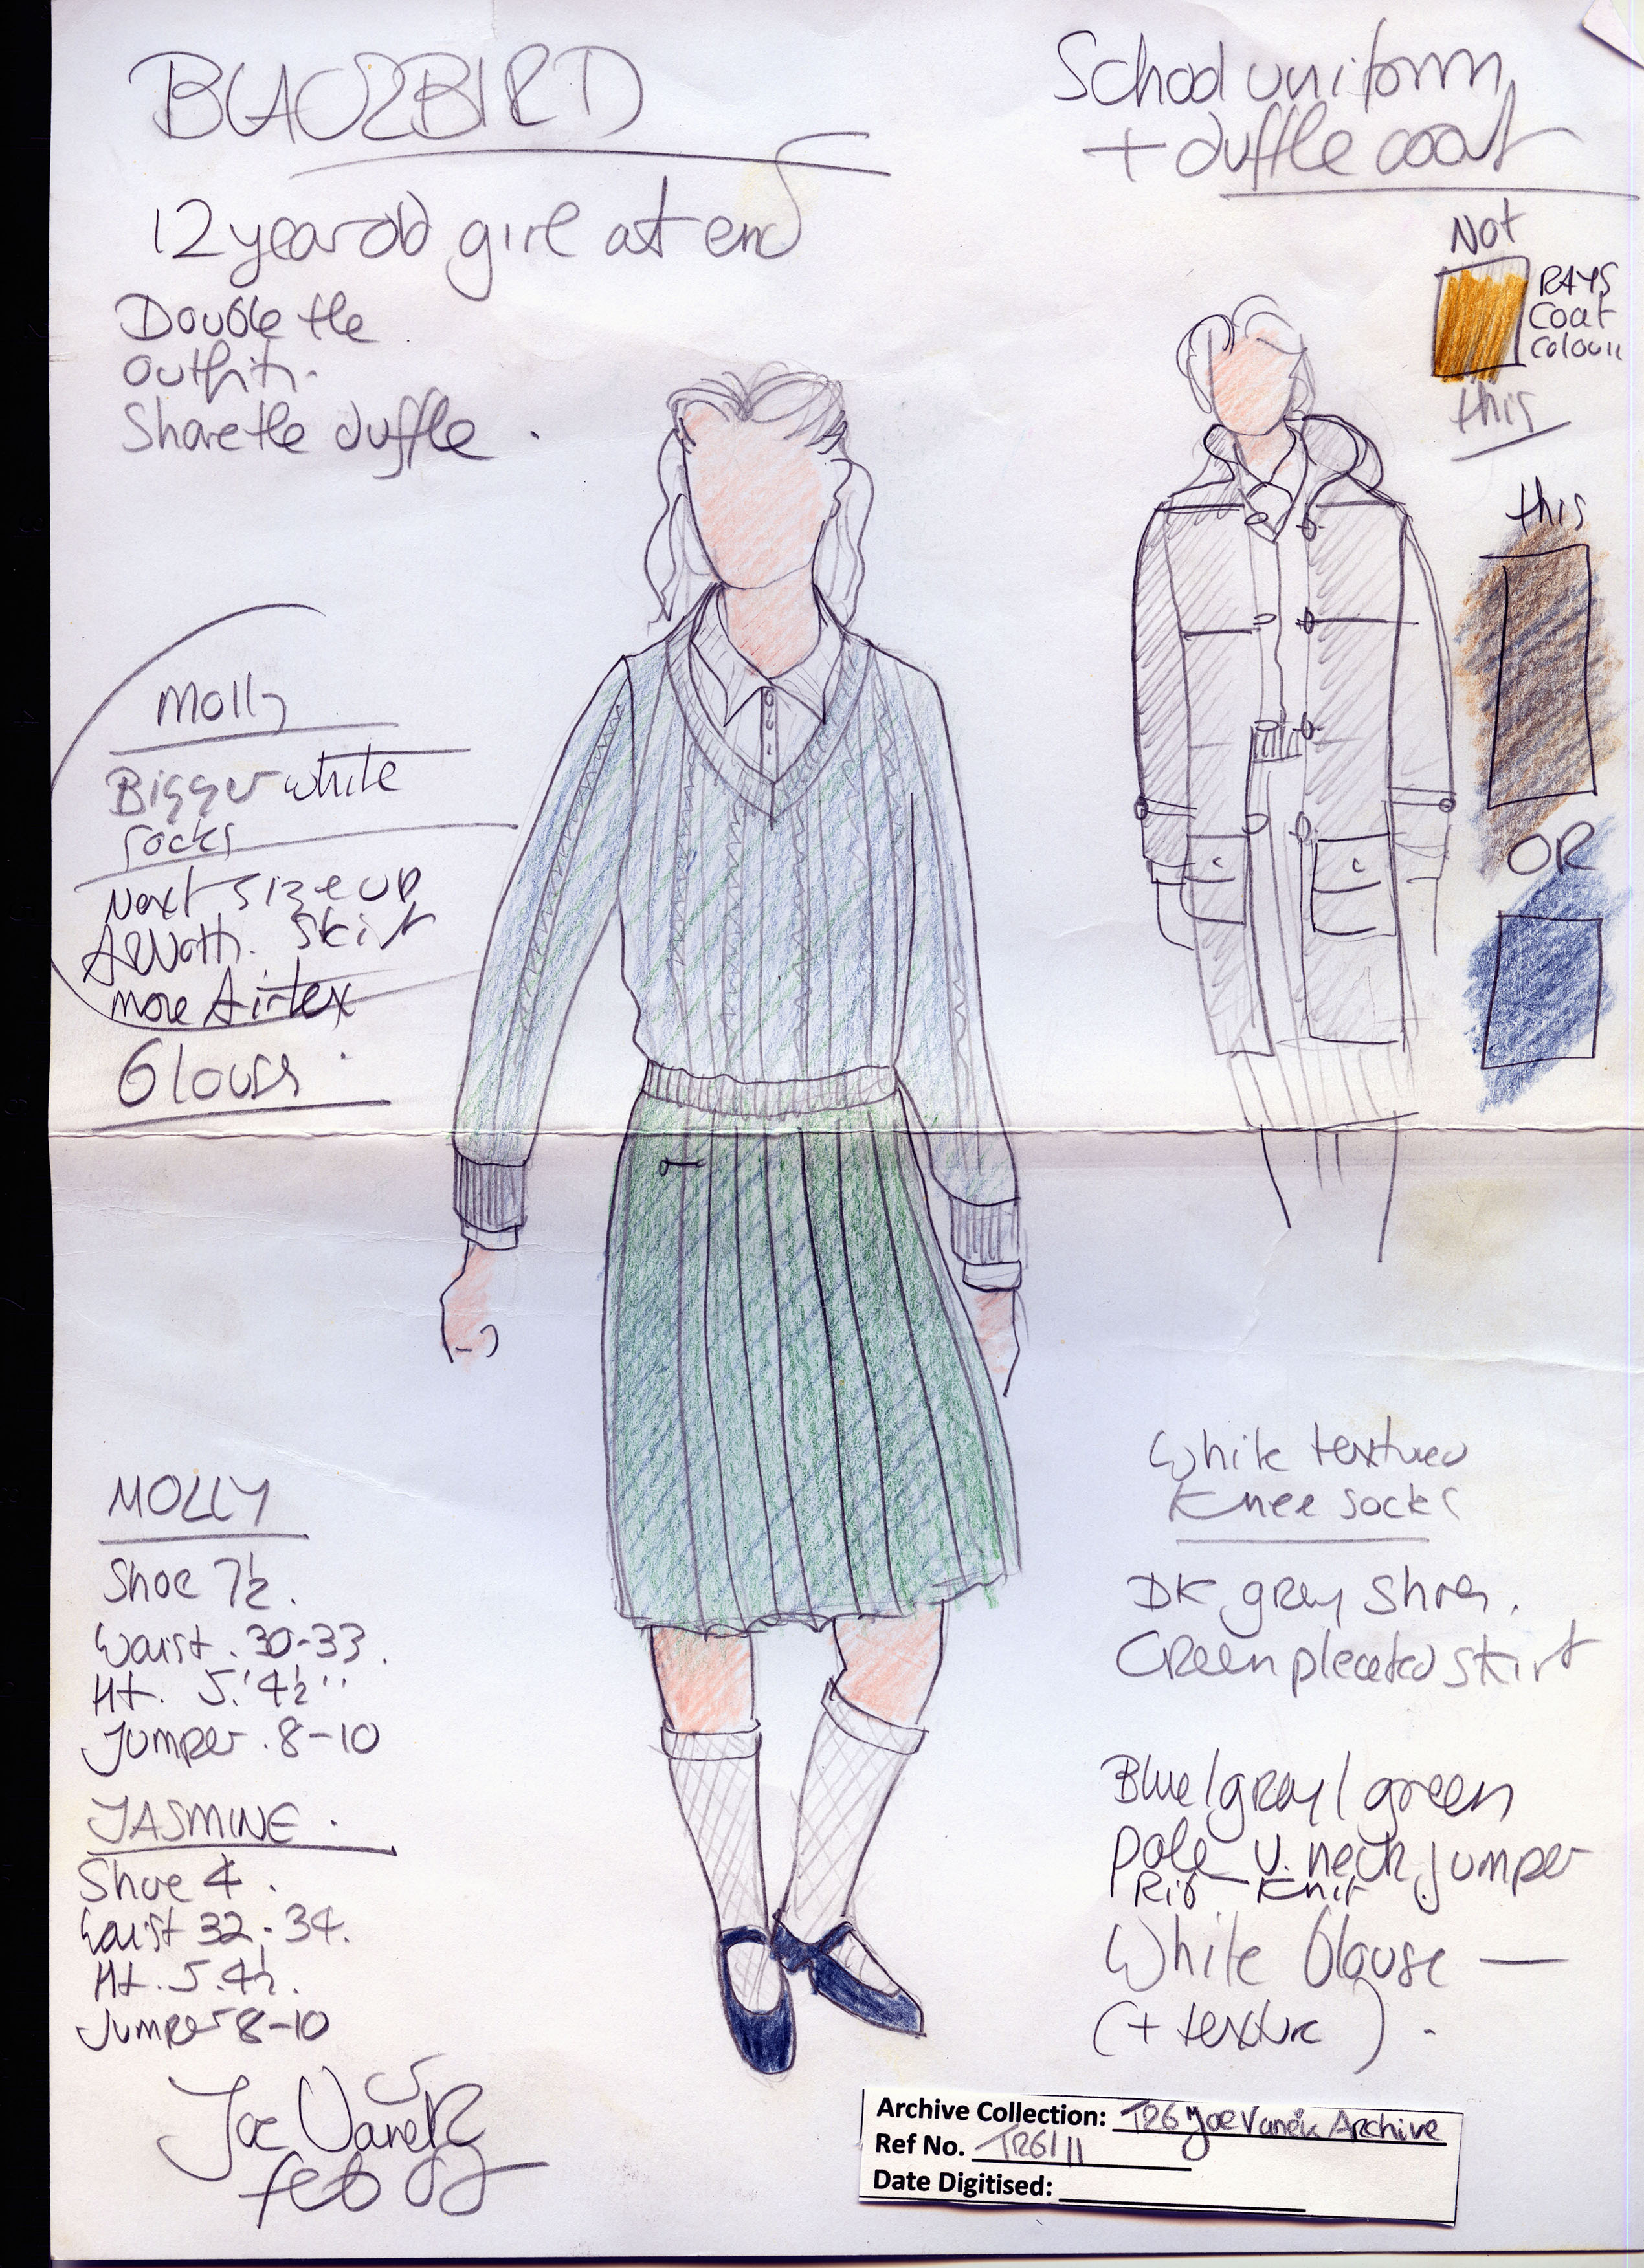 BLACKBIRD
12 year old girl at end
Double the
outfits.
Share the duffle.
School uniform
+ duffle coat
Not
RAYS
Coat
colour
this
this
OR
Molly
Bigger white
socks
Next size up
skirt
more Airtex
Gloves.
MOLLY
Shoe 7½.
Waist. 30-33.
Ht. 5.'4½''
Jumper. 8-10
JASMINE.
Shoe 4.
Waist 32-34.
Ht. 5.4½.
Jumper 8-10
Joe Vaněk
feb
White textured
Knee socks
DK gray shoes.
Green pleated skirt
Blue/gray/green
pale V. neck jumper
Rib Knit
White blouse —
(+ texture).
Archive Collection: TR6 Joe Vaněk Archive
Ref No. TR6/11
Date Digitised: